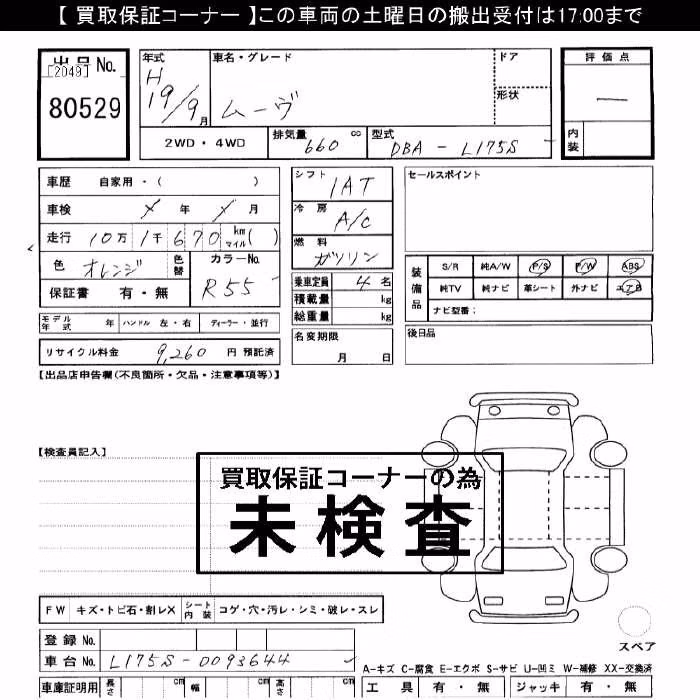 【 買取保証コーナー 】この車両の土曜日の搬出受付は17:00まで
出品 No.
[2049]
80529
年式 車名・グレード ドア
H 19/9月 ムーヴ 形状
2WD・4WD 排気量 660 cc 型式 DBA - L175S
評価点
―
内装
車歴 自家用・( )
車検 × 年 × 月
走行 10万 1千 670 km マイル ( )
色 オレンジ 色替 カラーNo. R55
保証書 有・無
モデル年式 年 ハンドル 左・右 ディーラー・並行
リサイクル料金 9,260 円 預託済
シフト 1AT
冷房 A/C
燃料 ガソリン
乗車定員 4 名
積載量 kg
総重量 kg
名変期限
月 日
セールスポイント
装備品 S/R 純A/W P/S P/W ABS
純TV 純ナビ 革シート 外ナビ エアB
ナビ型番:
後日品
【出品店申告欄(不良箇所・欠品・注意事項等)】
【検査員記入】
買取保証コーナーの為
未検査
FW キズ・トビ石・割レX シート内装 コゲ・穴・汚レ・シミ・破レ・スレ
登録 No.
車台 No. L175S-0093644
車庫証明用 長さ cm 幅 cm 高さ cm
スペア
A-キズ C-腐食 E-エクボ S-サビ U-凹ミ W-補修 XX-交換済
工具 有・無 ジャッキ 有・無